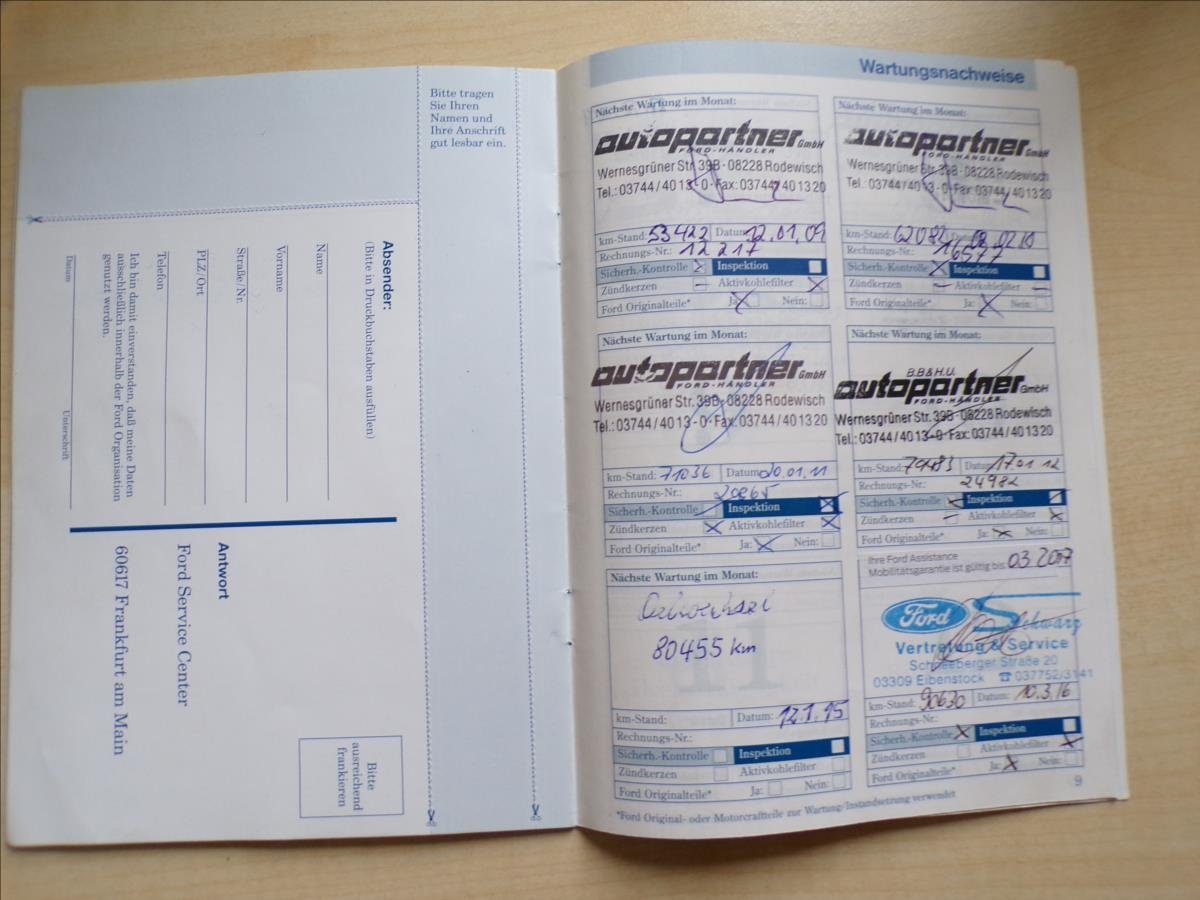 Bitte tragen
Sie Ihren
Namen und
Ihre Anschrift
gut lesbar ein.
Absender:
(Bitte in Druckbuchstaben ausfüllen)
Name
Vorname
Straße/Nr.
PLZ/Ort
Telefon
Ich bin damit einverstanden, daß meine Daten
ausschließlich innerhalb der Ford Organisation
genutzt werden.
Datum Unterschrift
Antwort
Ford Service Center
60617 Frankfurt am Main
Bitte
ausreichend
frankieren
Wartungsnachweise
Nächste Wartung im Monat:
autopartner GmbH
FORD-HÄNDLER
Wernesgrüner Str. 39B · 08228 Rodewisch
Tel.: 03744/40 13-0 · Fax: 03744/40 13 20
km-Stand: 53422 Datum: 12.01.09
Rechnungs-Nr.: 12217
Sicherh.-Kontrolle Inspektion
Zündkerzen Aktivkohlefilter
Ford Originalteile* Ja: Nein:
Nächste Wartung im Monat:
autopartner GmbH
FORD-HÄNDLER
Wernesgrüner Str. 39B · 08228 Rodewisch
Tel.: 03744/40 13-0 · Fax: 03744/40 13 20
km-Stand: Datum: 02.10
Rechnungs-Nr.: 16577
Sicherh.-Kontrolle Inspektion
Zündkerzen Aktivkohlefilter
Ford Originalteile* Ja: Nein:
Nächste Wartung im Monat:
autopartner GmbH
FORD-HÄNDLER
Wernesgrüner Str. 39B · 08228 Rodewisch
Tel.: 03744/40 13-0 · Fax: 03744/40 13 20
km-Stand: 71036 Datum: 20.01.11
Rechnungs-Nr.: 20865
Sicherh.-Kontrolle Inspektion
Zündkerzen Aktivkohlefilter
Ford Originalteile* Ja: Nein:
Nächste Wartung im Monat:
B.B&H.U.
autopartner GmbH
FORD-HÄNDLER
Wernesgrüner Str. 39B · 08228 Rodewisch
Tel.: 03744/40 13-0 · Fax: 03744/40 13 20
km-Stand: 79483 Datum: 17.01.12
Rechnungs-Nr.: 24982
Sicherh.-Kontrolle Inspektion
Zündkerzen Aktivkohlefilter
Ford Originalteile* Ja: Nein:
Nächste Wartung im Monat:
80455 km
11
km-Stand: Datum: 12.1.15
Rechnungs-Nr.:
Sicherh.-Kontrolle Inspektion
Zündkerzen Aktivkohlefilter
Ford Originalteile* Ja: Nein:
Ihre Ford Assistance
Mobilitätsgarantie ist gültig bis: 03.2017
Ford Schwarz
Vertretung & Service
Schneeberger Straße 20
03309 Eibenstock ☎ 037752/3141
km-Stand: 90630 Datum: 10.3.16
Rechnungs-Nr.:
Sicherh.-Kontrolle Inspektion
Zündkerzen Aktivkohlefilter
Ford Originalteile* Ja: Nein:
*Ford Original- oder Motorcraftteile zur Wartung/Instandsetzung verwendet
9